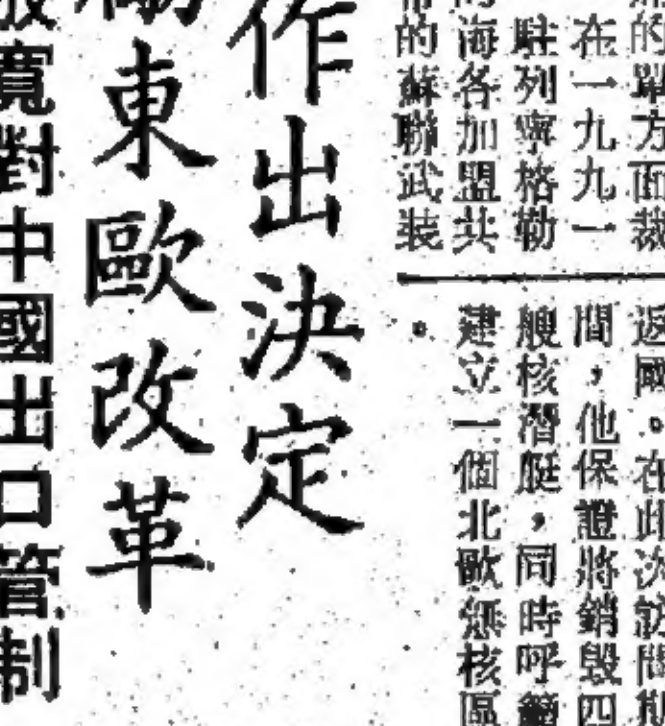 的單方面裁
在一九九一
駐列寧格勒
海各加盟共
的蘇聯武裝
返國。在此次訪問期
間，他保證將銷毀四
艘核潛艇，同時呼籲
建立一個北歐無核區
。
作出決定
東歐改革
寬對中國出口管制